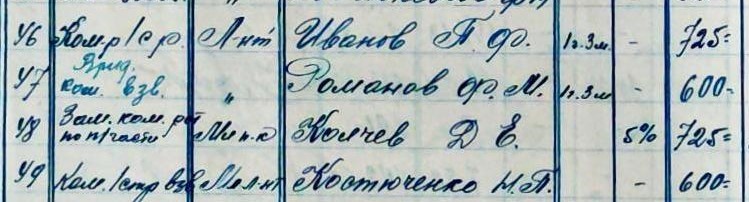 46 Ком р/ср. Л-нт Иванов П. Ф. 1г.3м. - 725=
Врид.
47 ком. взв. " Романов Ф. М. 1г.3м - 600=
Зам. ком. рот
48 по п/части Мл п-к Колчев Д Е. 5% 725=
49 Ком. /стр взв Мл л-нт Костюченко Н.П. - 600=